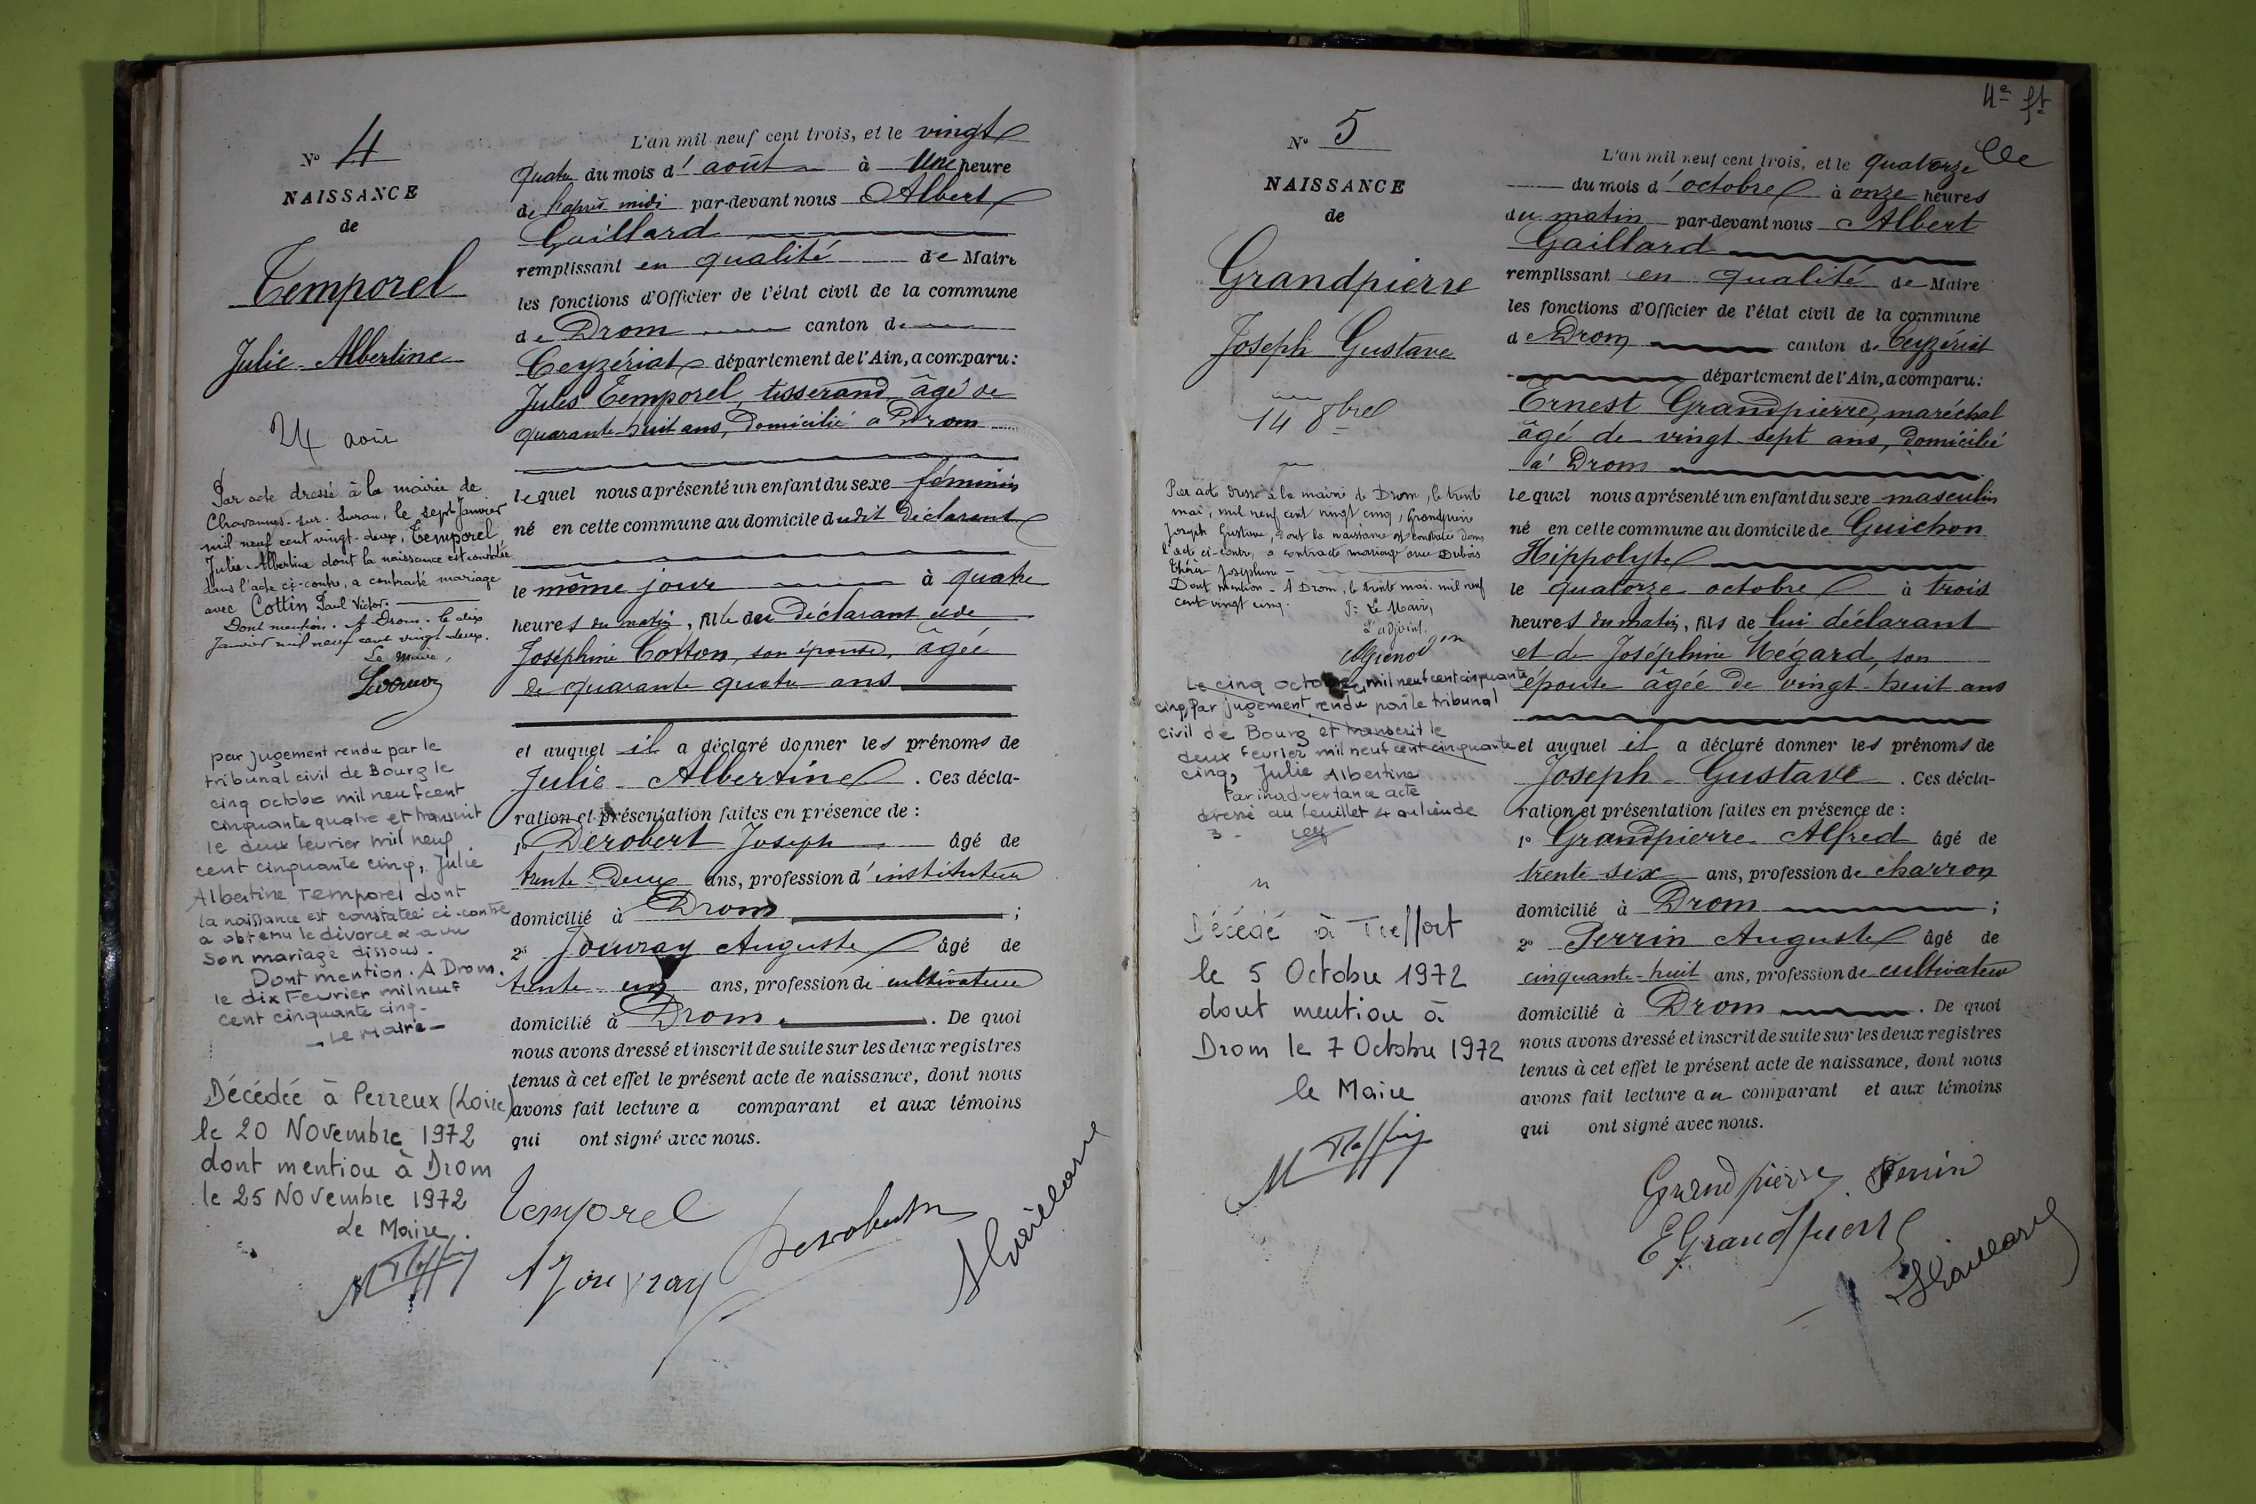 N° 4
NAISSANCE
de
Temporel
Julie Albertine
24 août
Par acte dressé à la mairie de
Chavannes-sur-Suran, le sept Janvier
mil neuf cent vingt-deux, Temporel
Julie Albertine dont la naissance est constatée
dans l'acte ci-contre, a contracté mariage
avec Cottin Paul Victor.
Dont mention. A Drom. le dix
Janvier mil neuf cent vingt-deux.
Le Maire,
par jugement rendu par le
tribunal civil de Bourg le
cinq octobre mil neuf cent
cinquante quatre et transcrit
le deux fevrier mil neuf
cent cinquante cinq, Julie
Albertine Temporel dont
la naissance est constatée ci-contre
a obtenu le divorce & a vu
son mariage dissous.
Dont mention. A Drom.
le dix Fevrier mil neuf
cent cinquante cinq-
Le Maire-
Décédée à Perreux (Loire)
le 20 Novembre 1972
dont mention à Drom
le 25 Novembre 1972
Le Maire.
L'an mil neuf cent trois, et le vingt
quatre du mois d'août à Une heure
de l'après midi par-devant nous Albert
Gaillard
remplissant en qualité de Maire
les fonctions d'Officier de l'état civil de la commune
de Drom canton de
Ceyzériat département de l'Ain, a comparu:
Jules Temporel, tisserand âgé de
quarante huit ans, domicilié à Drom
lequel nous a présenté un enfant du sexe féminin
né en cette commune au domicile dudit déclarant
le même jour à quatre
heures du matin, fille du Déclarant et de
Joséphine Cotton, son épouse, âgée
de quarante quatre ans
et auquel il a déclaré donner les prénoms de
Julie Albertine. Ces décla-
ration et présentation faites en présence de :
1° Derobert Joseph âgé de
trente-deux ans, profession d'instituteur
domicilié à Drom ;
2° Jouvray Auguste âgé de
trente ans, profession de cultivateur
domicilié à Drom. De quoi
nous avons dressé et inscrit de suite sur les deux registres
tenus à cet effet le présent acte de naissance, dont nous
avons fait lecture a comparant et aux témoins
qui ont signé avec nous.
Temporel
Derobert
A Jouvray
A Gaillard
4e ft
N° 5
NAISSANCE
de
Grandpierre
Joseph Gustave
14 8bre
Par acte dressé à la mairie de Drom, le trente
mai, mil neuf cent vingt cinq, Grandpierre
Joseph Gustave, dont la naissance est constatée dans
l'acte ci-contre, a contracté mariage avec Dubois
Joséphine
Dont mention - A Drom, le trente mai mil neuf
cent vingt cinq.
P. Le Maire,
L'adjoint
Le cinq octobre mil neuf cent cinquante
cinq, Par jugement rendu par le tribunal
civil de Bourg et transcrit le
deux Fevrier mil neuf cent cinquante
cinq, Julie Albertine
Par inadvertance acte
dressé au feuillet 4 au lieu de
3 -
Décédé à Treffort
le 5 Octobre 1972
dont mention à
Drom le 7 Octobre 1972
le Maire
L'an mil neuf cent trois, et le quatorze
du mois d'octobre à onze heures
du matin par-devant nous Albert
Gaillard
remplissant en qualité de Maire
les fonctions d'Officier de l'état civil de la commune
de Drom canton de Ceyzériat
département de l'Ain, a comparu:
Ernest Grandpierre, maréchal
âgé de vingt-sept ans, domicilié
à Drom
lequel nous a présenté un enfant du sexe masculin
né en cette commune au domicile de Guichon
Hippolyte
le quatorze octobre à trois
heures du matin, fils de lui déclarant
et de Joséphine Mégard, son
épouse âgée de vingt-huit ans
et auquel il a déclaré donner les prénoms de
Joseph Gustave. Ces décla-
ration et présentation faites en présence de :
1° Grandpierre Alfred âgé de
trente-six ans, profession de charron
domicilié à Drom ;
2° Perrin Auguste âgé de
cinquante-huit ans, profession de cultivateur
domicilié à Drom. De quoi
nous avons dressé et inscrit de suite sur les deux registres
tenus à cet effet le présent acte de naissance, dont nous
avons fait lecture au comparant et aux témoins
qui ont signé avec nous.
Grandpierre Perrin
E Grandpierre
A Gaillard